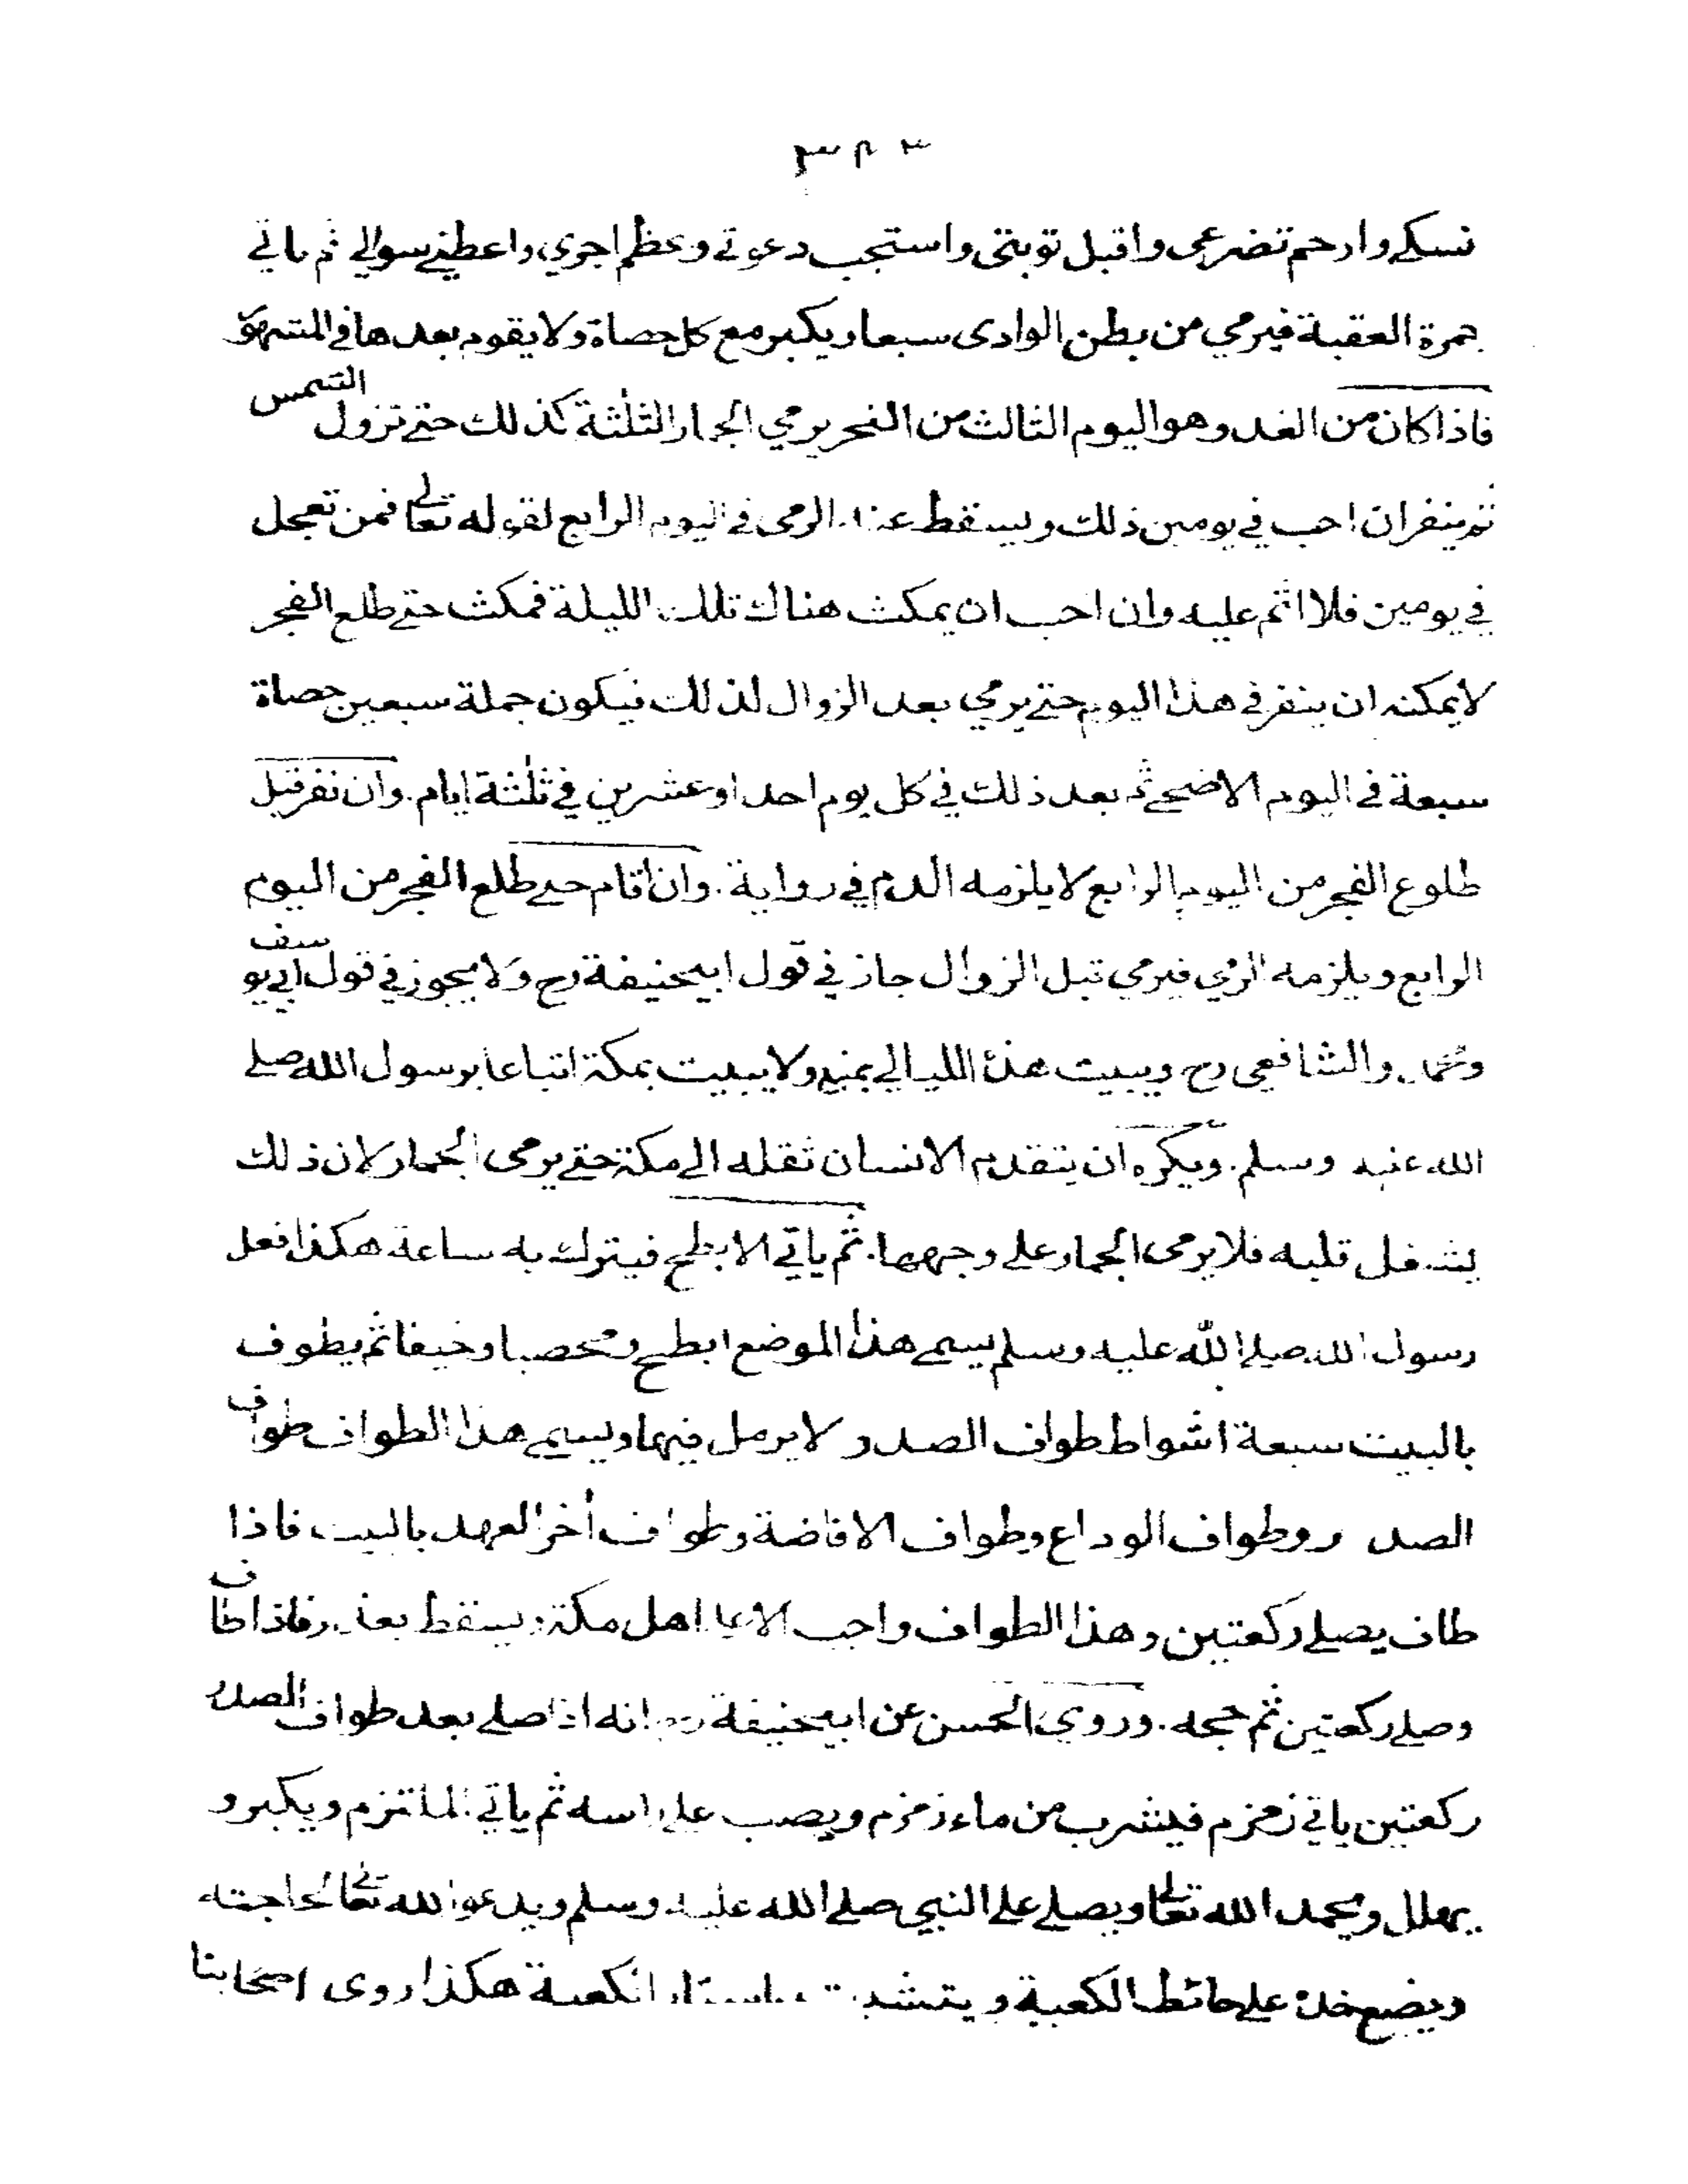 نسكي وارحم تضرعي واقبل توبتي واستجب دعوتي وعظم اجري واعطني سوالي ثم ياتي
جمرة العقبة فيرمي من بطن الوادى سبعا ويكبر مع كل حصاة ولا يقوم بعدها في المشهور
فاذا كان من الغد وهو اليوم الثالث من النحر يرمي الجمار الثلثة كذلك حتى تزول الشمس
ثم ينفر ان احب في يومين ذلك ويسقط عنه الرمى في اليوم الرابع لقوله تعالى فمن تعجل
في يومين فلا اثم عليه وان احب ان يمكث هناك تلك الليلة فمكث حتى طلع الفجر
لا يمكنه ان ينفر في هذا اليوم حتى يرمي بعد الزوال لذلك فيكون جملة سبعين حصاة
سبعة في اليوم الاضحى ثم بعد ذلك في كل يوم احد او عشرين في ثلثة ايام. وان نفر قبل
طلوع الفجر من اليوم الرابع لا يلزمه الدم في رواية. وان اقام حتى طلع الفجر من اليوم
الرابع ويلزمه الرمي فيرمي قبل الزوال جاز في قول ابيحنيفة رح ولا يجوز في قول ابي يوسف
ومحمد والشافعى رح ويبيت هذه الليالي بمنى ولا يبيت بمكة اتباعا برسول الله صلى
الله عليه وسلم. ويكره ان يتقدم الانسان ثقله الى مكة حتى يرمى الجمار لان ذلك
يشغل قلبه فلا يرمى الجمار على وجهها. ثم ياتي الابطح فيترك به ساعة هكذا فعل
رسول الله صلى الله عليه وسلم يسمى هذا الموضع ابطح ومحصبا وخيفا ثم يطوف
بالبيت سبعة اشواط طواف الصدر لا يرمل فيها ويسمى هذا الطواف طواف
الصدر وطواف الوداع وطواف الافاضة وطواف أخر العهد بالبيت فاذا
طاف يصلي ركعتين وهذا الطواف واجب الا على اهل مكة ويسقط بعذر فاذا طاف
وصلى ركعتين ثم حجه. وروي الحسن عن ابيحنيفة رح انه اذا صلى بعد طواف الصدر
ركعتين ياتي زمزم فيشرب من ماء زمزم ويصب على راسه ثم ياتي الملتزم ويكبر و
يهلل ويحمد الله تعالى ويصلى على النبي صلى الله عليه وسلم ويدعو الله تعالى لحاجته
ويضع خده على حائط الكعبة ويتشبث باستار الكعبة هكذا روى اصحابنا